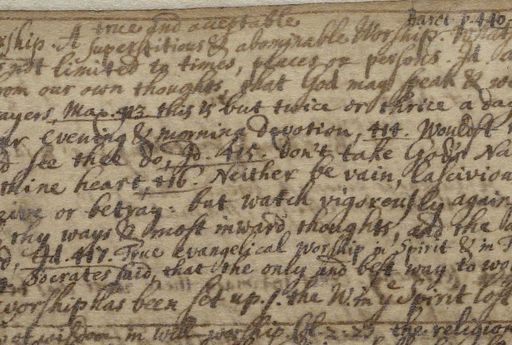 Barcl. p. 440.
true and acceptable
rship. A superstitious & abominable Worship. What
not limited to times, places or persons. It
om our own thoughts, that God may speak & wo
ayers, Mag. 413 this is but twice or thrice a da
ur evening & morning devotion, 414. Wouldst
d see thee do, Id. 415. Don't take God's Na
thine heart, 416. Neither be vain, lasciviou
or betray: but watch vigorously again
thy ways & most inward thoughts, and the a
d; Id. 417. True evangelical worship in Spirit & in T
Socrates said, that the only and best way to wo
worship has been set up, s. the W. in ye Spirit lost
wisdom in will worship Col. 2. 23 the religion